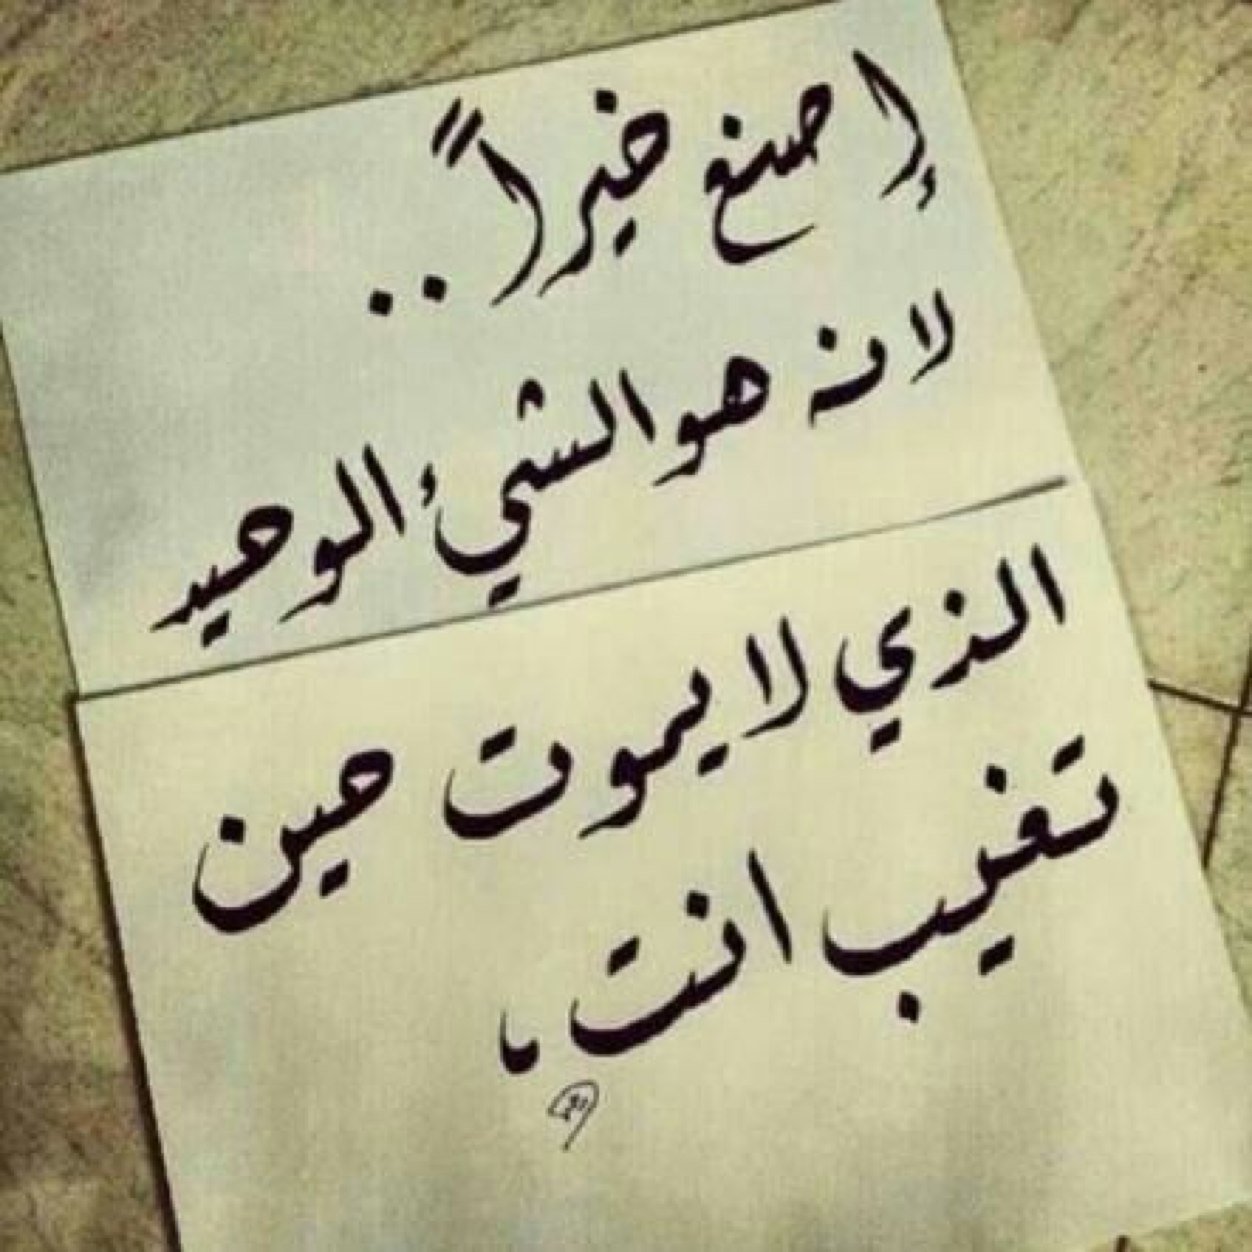 إصنع خيراً..
لانه هو الشيئ الوحيد
الذي لا يموت حين
تغيب انت